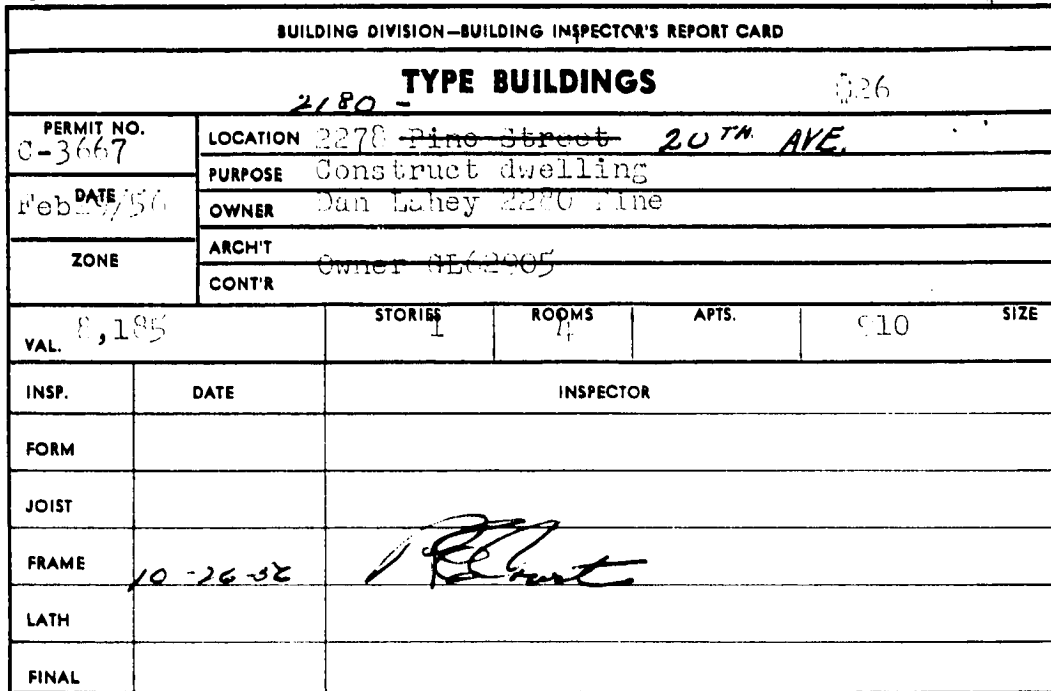 BUILDING DIVISION—BUILDING INSPECTOR'S REPORT CARD
TYPE BUILDINGS
2180 -
PERMIT NO. C-3667
LOCATION 2278 Pine Street 20TH. AVE.
PURPOSE Construct dwelling
DATE Feb /56
OWNER Dan Lahey 2280 Pine
ZONE
ARCH'T
Owner GL62905
CONT'R
VAL. 8,185
STORIES 1
ROOMS 4
APTS.
910 SIZE
INSP. DATE INSPECTOR
FORM
JOIST
FRAME 10-26-56
LATH
FINAL